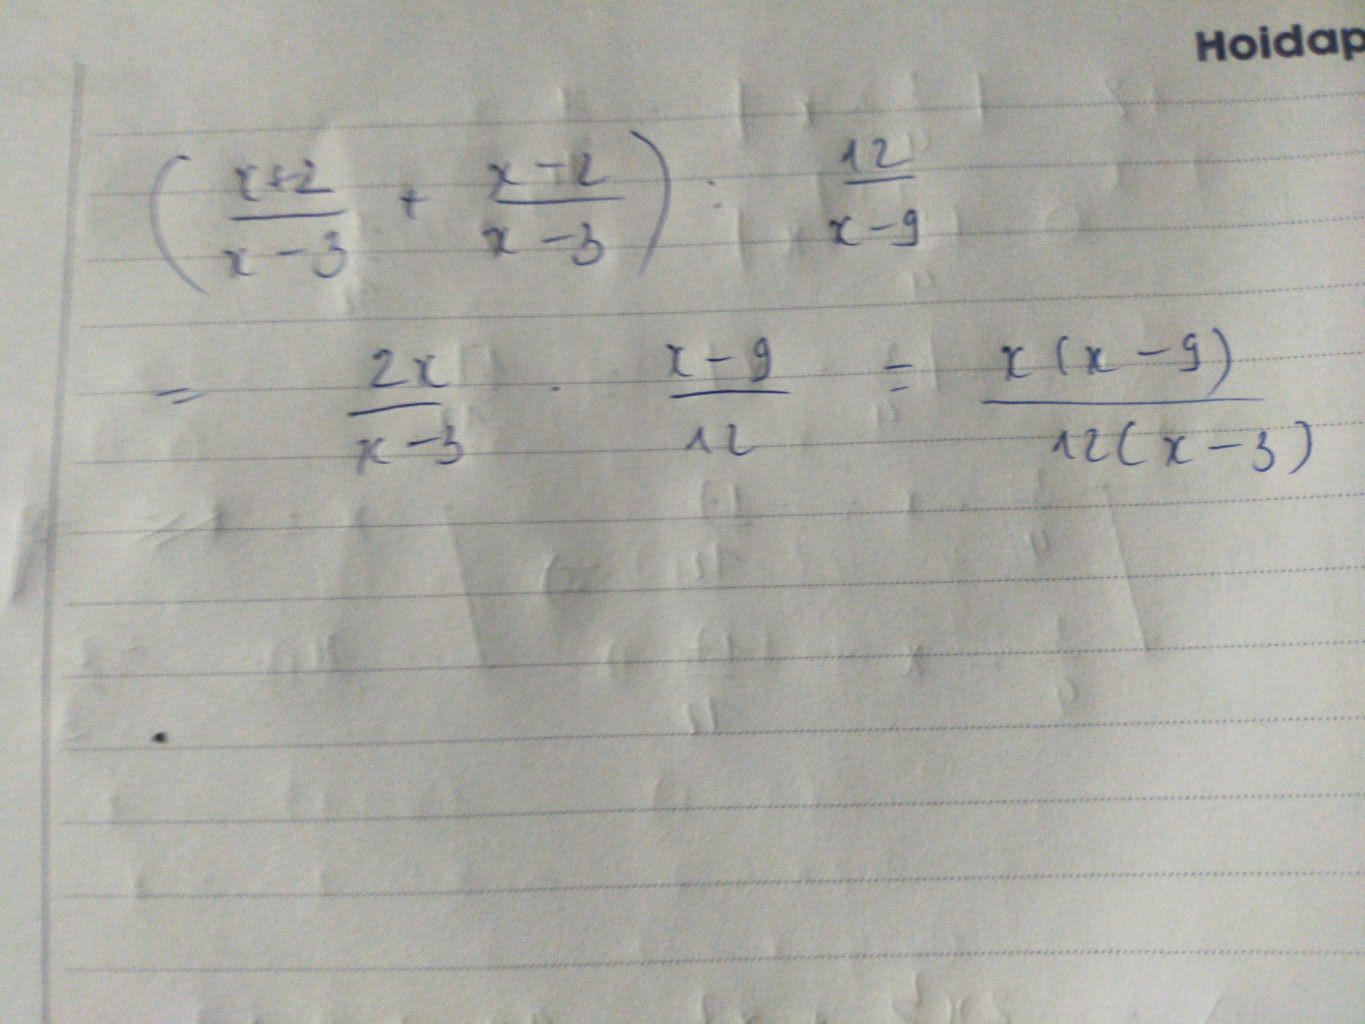 Hoidap
( (x+2)/(x-3) + (x-2)/(x-3) ) : 12/(x-9)
= 2x/(x-3) . (x-9)/12 = x(x-9)/12(x-3)